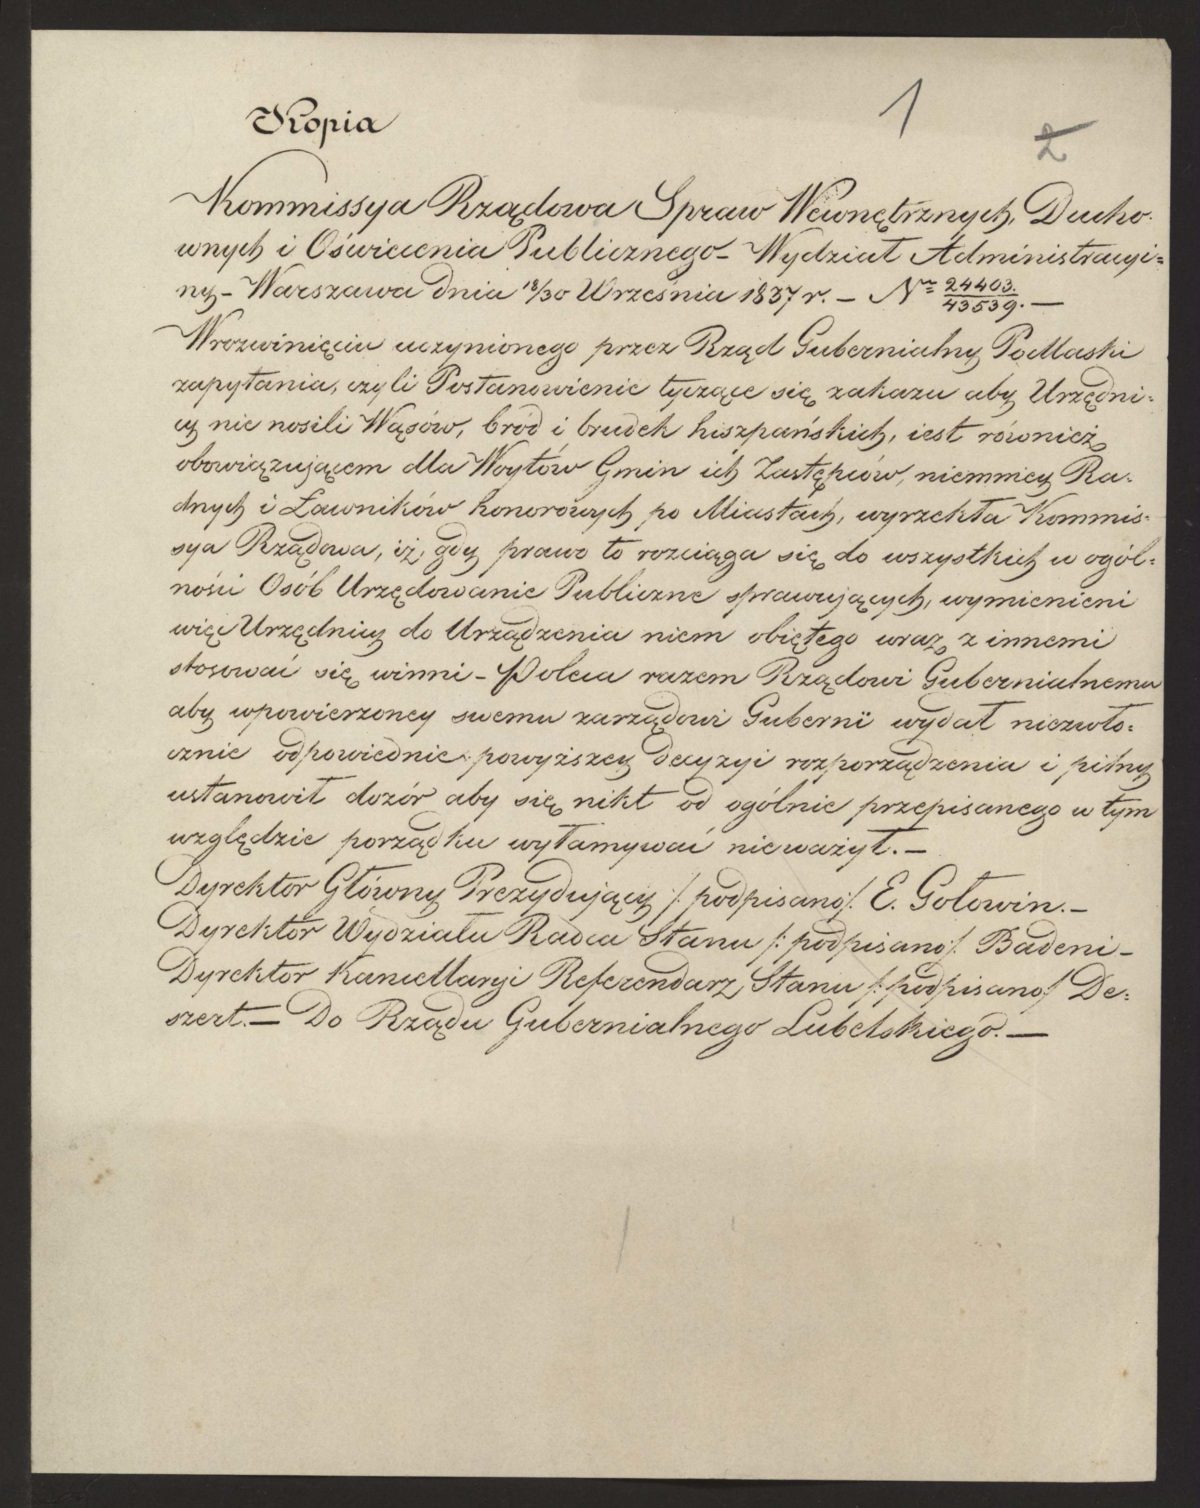 Kopia
1
2
Kommissya Rządowa Spraw Wewnętrznych, Ducho-
wnych i Oświecenia Publicznego – Wydział Administracyi=
ny – Warszawa dnia 18/30 Września 1837 r. – Nr 24403./43539. –
Wrozwinięciu uczynionego przez Rząd Gubernialny Podlaski
zapytania, czyli Postanowienie tyczące się zakazu aby Urzędni=
cy nie nosili Wąsów, bród i brudek hiszpańskich, iest również
obowiązującem dla Woytów Gmin ich Zastępców, niemniey Ra-
dnych i Ławników honorowych po Miastach, wyrzekła Kommis=
sya Rządowa, iż, gdy prawo to rozciąga się do wszystkich w ogól=
ności Osób Urzędowanie Publiczne sprawujących, wymienieni
więc Urzędnicy do Urządzenia niem obiętego wraz z innemi
stosować się winni – Poleca razem Rządowi Gubernialnemu
aby wpowierzoney swemu zarządowi Gubernii wydał niezwło=
cznie odpowiednie powyższey decyzyi rozporządzenia i pilny
ustanowił dozór aby się nikt od ogólnie przepisanego w tym
względzie porządku wyłamywać nieważył. –
Dyrektor Główny Prezydujący /: podpisano /. E. Gołowin. –
Dyrektor Wydziału Radca Stanu /: podpisano /. Badeni –
Dyrektor Kancellaryi Referendarz Stanu /: podpisano / De=
szert. – Do Rządu Gubernialnego Lubelskiego. –